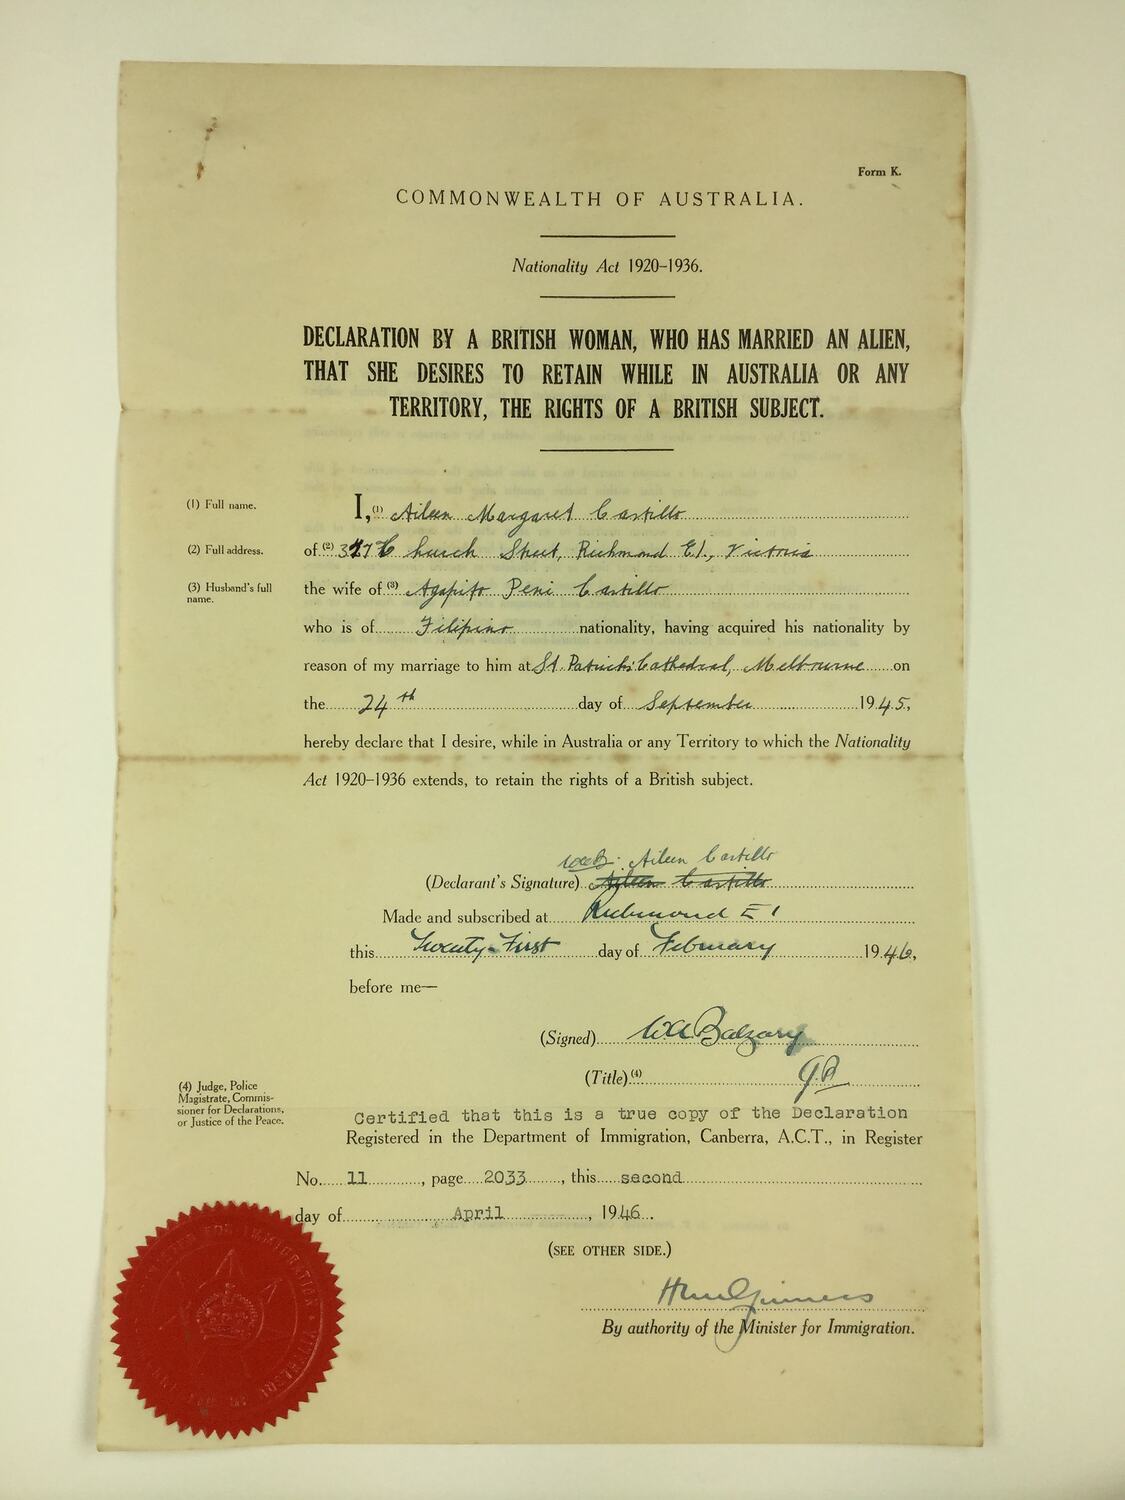 Form K.
COMMONWEALTH OF AUSTRALIA.
Nationality Act 1920–1936.
DECLARATION BY A BRITISH WOMAN, WHO HAS MARRIED AN ALIEN,
THAT SHE DESIRES TO RETAIN WHILE IN AUSTRALIA OR ANY
TERRITORY, THE RIGHTS OF A BRITISH SUBJECT.
(1) Full name. I,(1) Aileen Margaret Castillo
(2) Full address. of (2) Church Street, Richmond E1., Victoria
(3) Husband's full name. the wife of (3) Agapito Peni Castillo
who is of Filipino nationality, having acquired his nationality by
reason of my marriage to him at St. Patrick's Cathedral, Melbourne on
the 24th day of September 1945,
hereby declare that I desire, while in Australia or any Territory to which the Nationality
Act 1920–1936 extends, to retain the rights of a British subject.
Aileen Castillo
(Declarant's Signature) Aileen Castillo
Made and subscribed at Richmond E1
this Twenty-First day of February 1946,
before me—
(Signed) Balzary
(Title) (4) J.P.
(4) Judge, Police
Magistrate, Commis-
sioner for Declarations,
or Justice of the Peace.
Certified that this is a true copy of the Declaration
Registered in the Department of Immigration, Canberra, A.C.T., in Register
No. 11, page 2033, this second
day of April, 1946.
(SEE OTHER SIDE.)
By authority of the Minister for Immigration.